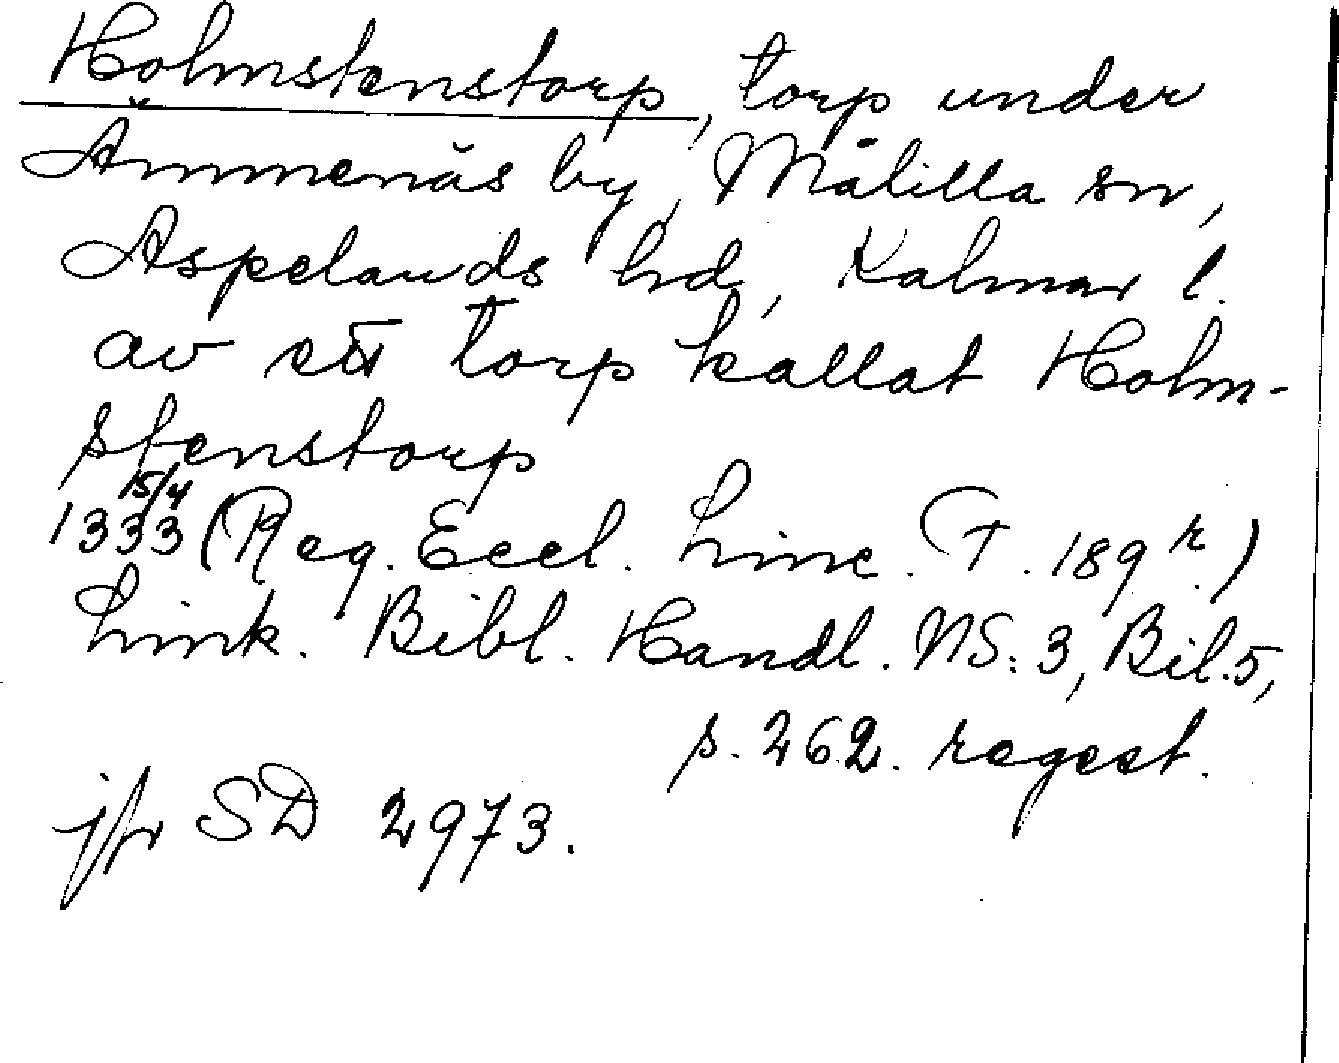 Holmstenstorp, torp under
Ämmenäs by, Målilla sn,
Aspelands hd, Kalmar l.
av ett torp kallat Holm-
stenstorp
15/4
1333 (Reg. Eccl. Linc. F. 189 r.)
Link. Bibl. Handl. NS: 3, Bil. 5,
s. 262. regest.
jfr SD 2973.